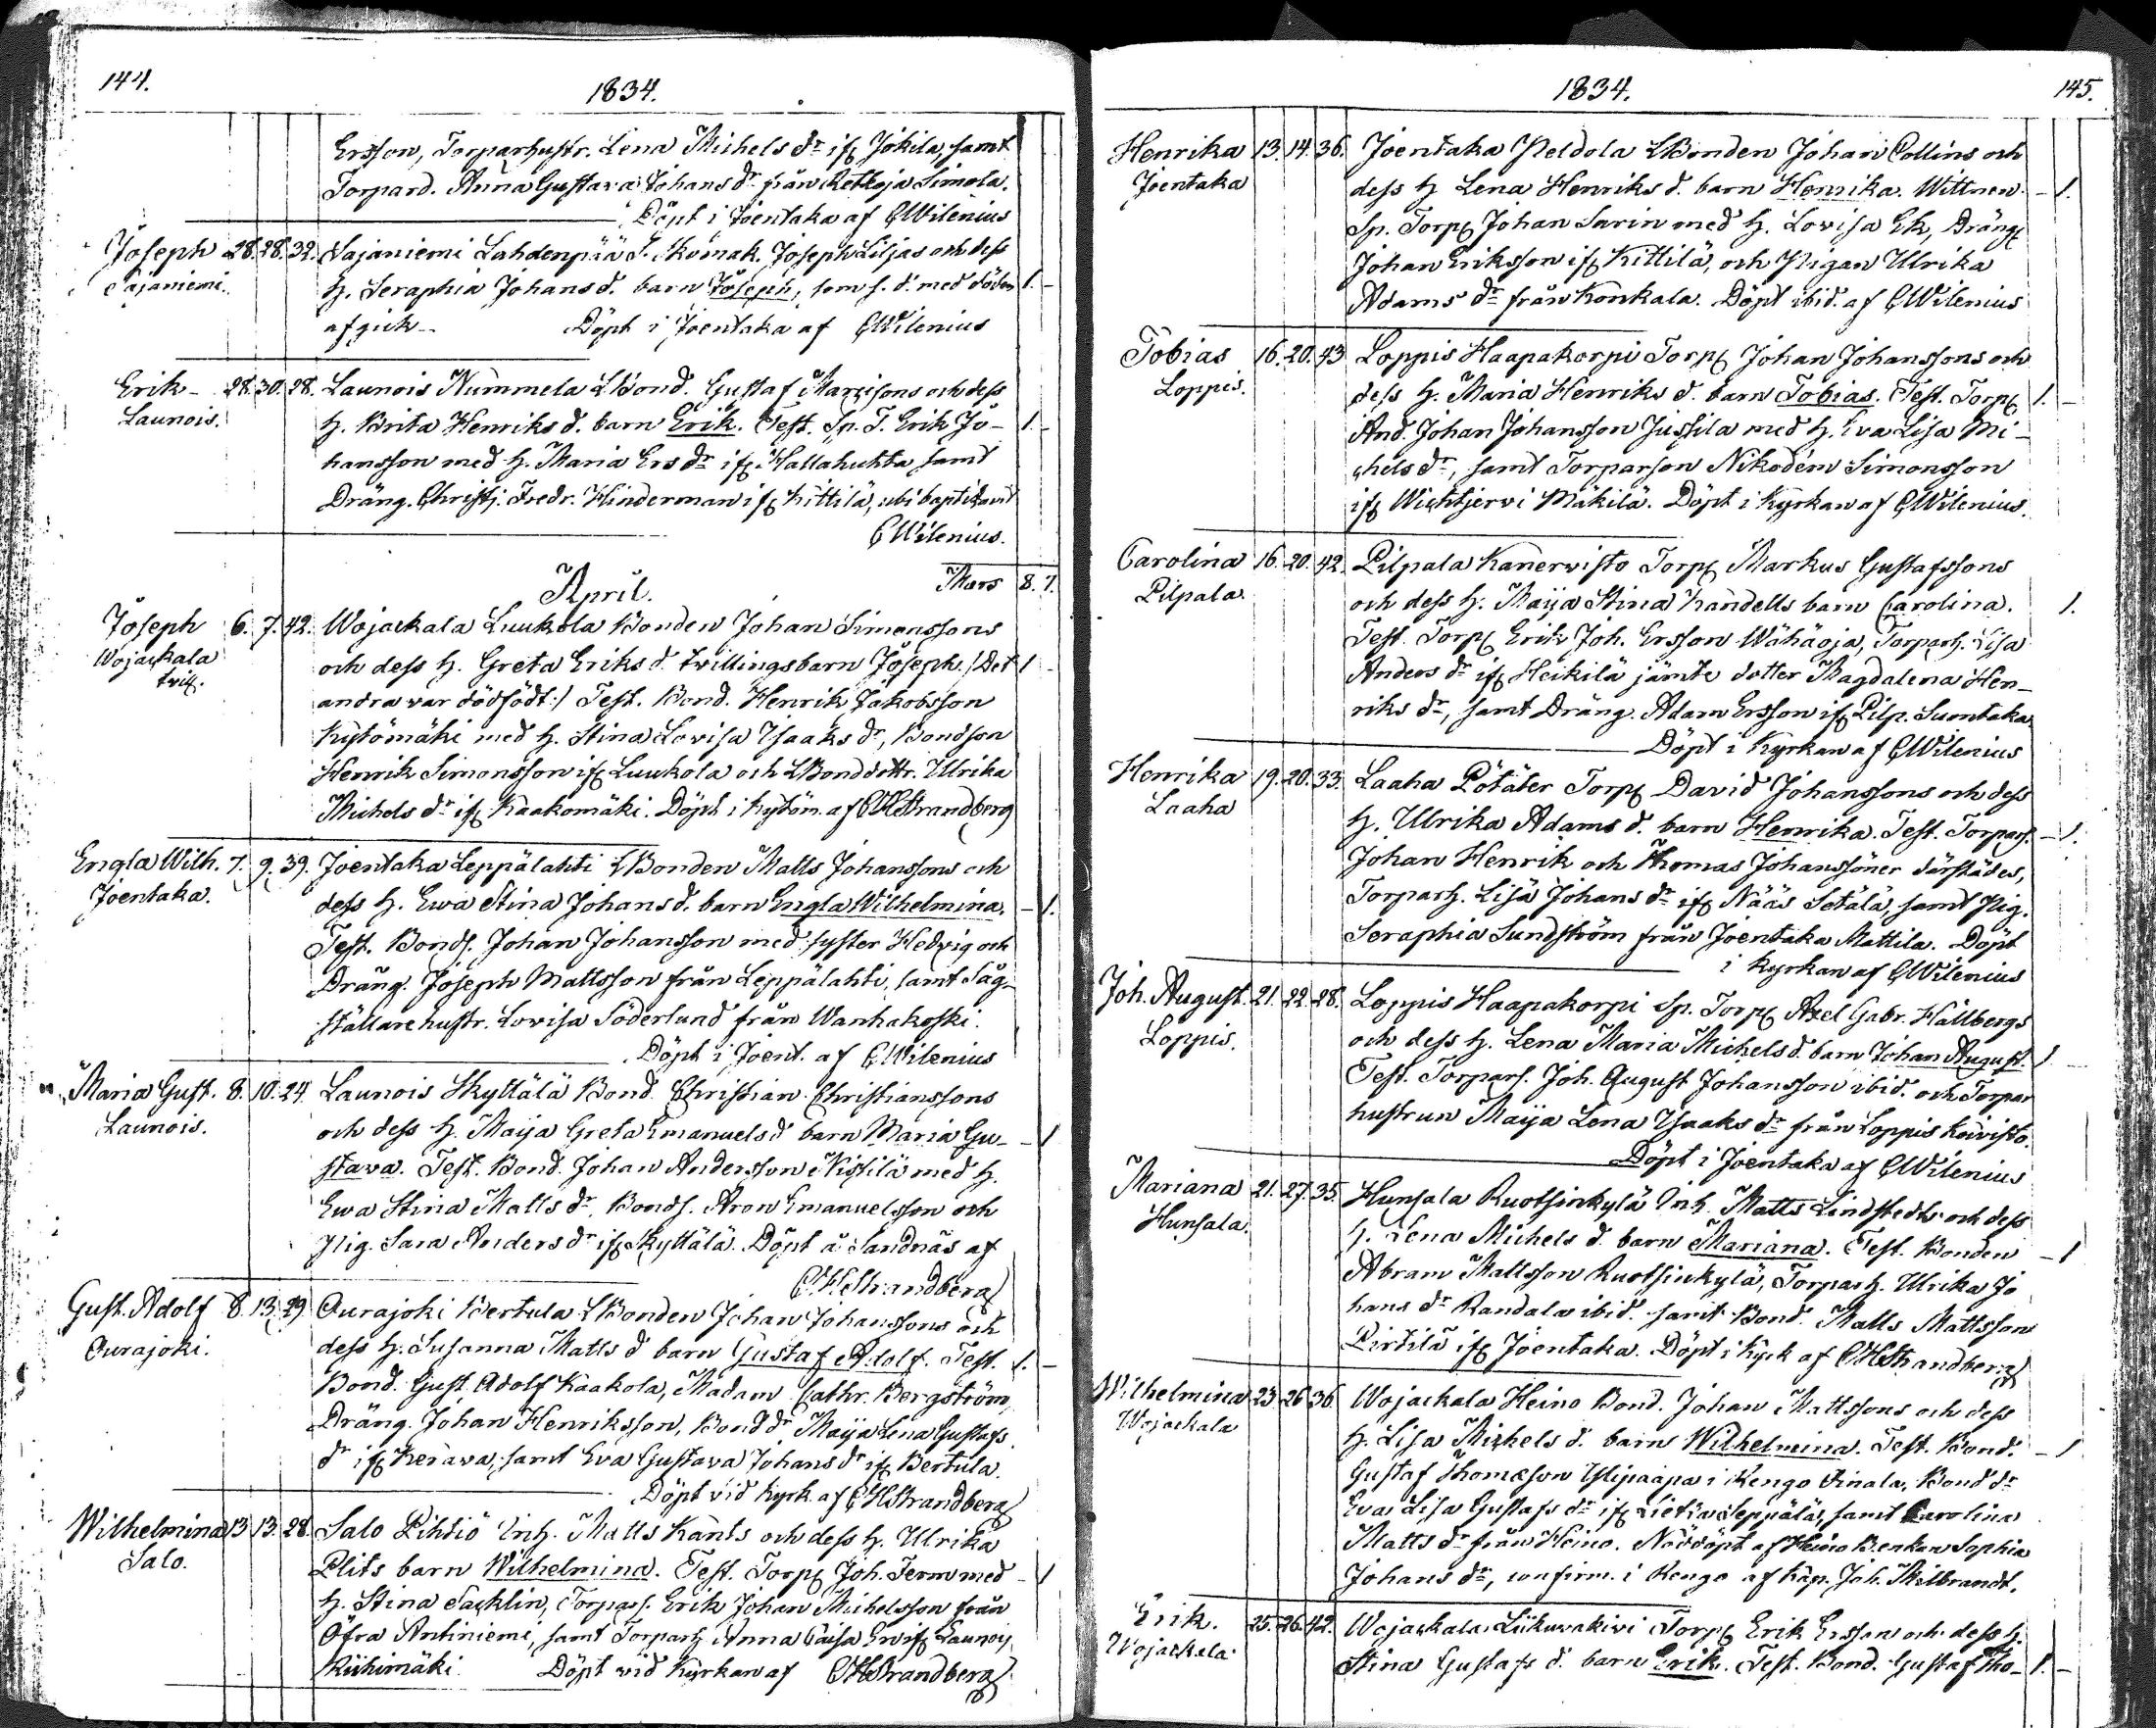 144.
1834.
Ersson, Torparhustr. Lena Michels dr ifr Jokila, samt
Torpard. Anna Gustava Johans dr från Simola.
Döpt i Joentaka af CWilenius
Joseph 28. 28. 32. Sajaniemi Lahdenpää Joseph Liljas och dess
Sajaniemi. h. Seraphia Johans d. barn Joseph, som s. d. med döden 1. -
afgick. Döpt i Joentaka af CWilenius
Erik 28. 30. 28. Launois Nummela LBond. Gustaf och dess
Launois. h. Brita Henriks d. barn Erik. Test. Sp. T. Erik Jo- 1 -
hansson med h. Maria Ers dr ifr Hallahuhta samt
Dräng. Christj. Fredr. Hinderman ifr Kittilä, ubi
CWilenius.
April. Mars 8. 7.
Joseph 6. 7. 42. Wojackala Luukola Bonden Johan Simonssons
Wojackala och dess h. Greta Eriks d. tvillingsbarn Joseph. /:Det 1 -
tvill. andra var dödfödt:/ Test. Bond. Henrik Jakobsson
Kytömäki med h. Stina Lovisa Isaaks dr, Bondson
Henrik Simonsson ifr Luukola och LBonddottr. Ulrika
Michels dr ifr Kaakomäki. Döpt i Kytöm. af CHStrandberg
Engla Wilh. 7. 9. 39. Joentaka Leppälahti LBonden Matts Johanssons och
Joentaka. dess h. Ewa Stina Johans d. barn Engla Wilhelmina. - 1.
Test. Bonds. Johan Johansson med syster Hedvig och
Dräng. Joseph Mattsson från Leppälahti, samt Såg-
ställarehustr. Lovisa Söderlund från Wanhakoski.
Döpt i Joent. af CWilenius
Maria Gust. 8. 10. 24. Launois Skyttälä Bond. Christian Christianssons
Launois. och dess h. Maija Greta Emanuels d. barn Maria Gu- - 1
stava. Test. Bond. Johan Andersson med h.
Ewa Stina Matts dr, Bonds. Aron Emanuelsson och
Pig. Sara Anders dr ifr Skyttälä. Döpt å Sandnäs af
CHStrandberg
Gust. Adolf 8. 13. 29. Ourajoki Bertula LBonden Johan Johanssons och
Ourajoki. dess h. Susanna Matts d. barn Gustaf Adolf. Test. 1. -
Bond. Gust. Adolf Kaakola, Madam Cathr. Bergström,
Dräng. Johan Henriksson, Bond dr Maija Lena Gustafs
dr ifr Kerava, samt Eva Gustava Johans dr ifr Bertula.
Döpt vid Kyrk. af CHStrandberg
Wilhelmina 13. 13. 28. Salo Pihtiö Inh. Matts Kants och dess h. Ulrika
Salo. Plits barn Wilhelmina. Test. Torp. Joh. Term med - 1
h. Stina Sacklin, Torpars. Erik Johan Michelsson från
Öfra Antiniemi, samt Torparh. Anna Caisa ifr Launois
Riihimäki Döpt vid Kyrkan af CHStrandberg
1834. 145.
Henrika 13. 14. 36. Joentaka Peldola LBonden Johan Collins och
Joentaka dess h. Lena Henriks d. barn Henrika. Wittnen - 1.
Sp. Torp. Johan Sarin med h. Lovisa Ek, Dräng
Johan Eriksson ifr Kittilä, och Pigan Ulrika
Adams dr från Konkala. Döpt ibid. af CWilenius
Tobias 16. 20. 43 Loppis Haapakorpi Torp. Johan Johanssons och
Loppis. dess h. Maria Henriks d. barn Tobias. Test. Torp. 1. -
And. Johan Johansson Jussila med h. Eva Lisa Mi-
chels dr, samt Torparson Nikodem Simonsson
ifr Wichtjervi Mäkilä. Döpt i Kyrkan af CWilenius.
Carolina 16. 20. 42. Pilpala Kanervisto Torp. Markus Gustafssons
Pilpala. och dess h. Maija Stina Kandells barn Carolina. 1.
Test. Torp. Erik Joh. Ersson Wähäoja, Torparh. Lisa
Anders dr ifr Heikilä jämte dotter Magdalena Hen-
riks dr, samt Dräng. Adam Ersson ifr Pilp. Suontaka
Döpt i Kyrkan af CWilenius
Henrika 19. 20. 33. Laaha Pötäter Torp. David Johanssons och dess
Laaha h. Ulrika Adams d. barn Henrika. Test. Torpars. - 1.
Johan Henrik och Thomas Johanssöner därstädes,
Torparh. Lisa Johans dr ifr Nääs Sotälä, samt Pig.
Seraphia Sundström från Joentaka Mattila. Döpt
i Kyrkan af CWilenius
Joh. August. 21. 22. 28. Loppis Haapakorpi Sp. Torp. Axel Gabr. Hällbergs
Loppis. och dess h. Lena Maria Michels d. barn Johan August. 1
Test. Torpars. Joh. August Johansson ibid. och Torpar
hustrun Maija Lena Isaaks dr från Loppis Koivisto.
Döpt i Joentaka af CWilenius
Mariana 21. 27. 35. Hunsala Ruotsinkylä Inh. Matts Lindstedts och dess
Hunsala. h. Lena Michels d. barn Mariana. Test. Bonden - 1
Abram Mattsson Ruotsinkylä, Torparh. Ulrika Jo
hans dr Randala ibid. samt Bond. Matts Mattsson
Pirtilä ifr Joentaka. Döpt i Kyrk af CHStrandberg
Wilhelmina 23. 26. 36. Wojackala Heino Bond. Johan Mattssons och dess
Wojackala h. Lisa Michels d. barn Wilhelmina. Test. Bond. - 1
Gustaf Thomæson Ylipaapa i Rengo Vinala, Bond dr
Eva Lisa Gustafs dr ifr Lietia Seppälä, samt Carolina
Matts dr från Heino. Nöddöpt af Heino Benkan Sophia
Johans dr, confirm. i Rengo af Kap. Joh. Milbrandt.
Erik. 25. 26. 42. Wojackala Liikuvakivi Torp. Erik Ersson och dess h.
Wojackala Stina Gustafs d. barn Erik. Test. Bond. Gustaf Tho- 1. -